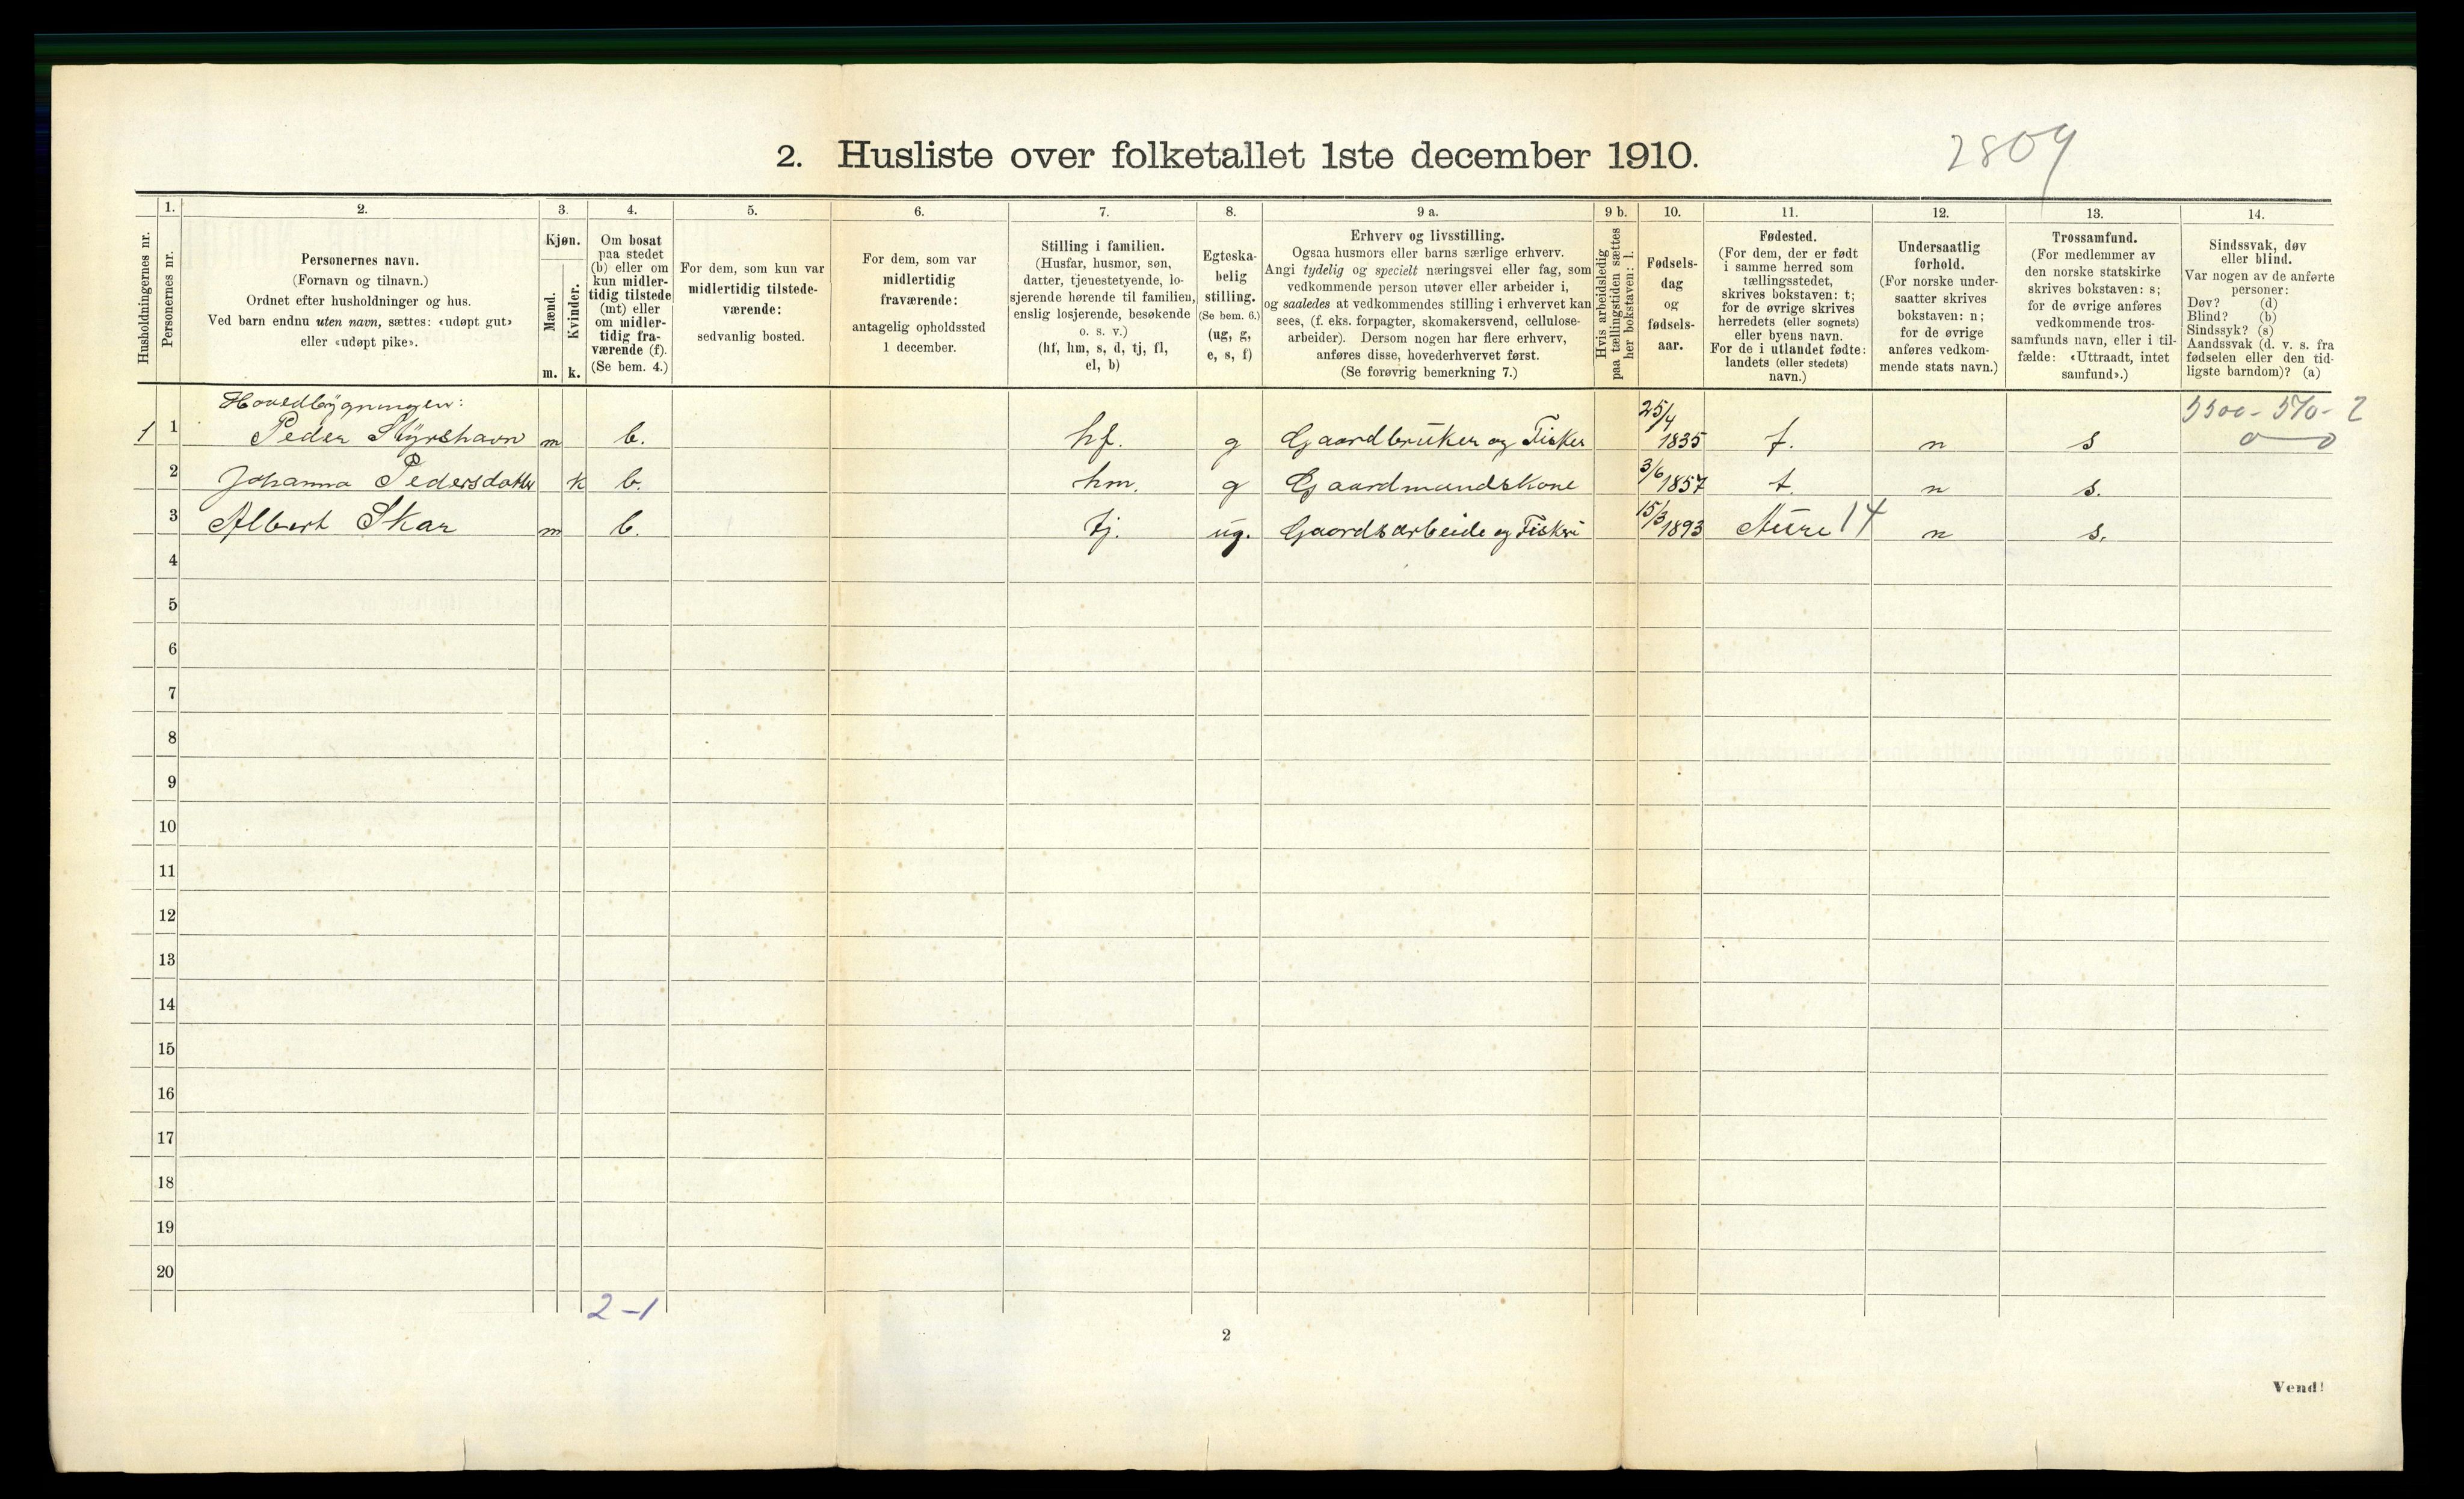 2. Husliste over folketallet 1ste december 1910.
2809
Husholdningernes nr.
1.
Personernes nr.
2.
Personernes navn.
(Fornavn og tilnavn.)
Ordnet efter husholdninger og hus.
Ved barn endnu uten navn, sættes: «udøpt gut»
eller «udøpt pike».
3.
Kjøn.
Mænd.
Kvinder.
m. k.
4.
Om bosat
paa stedet
(b) eller om
kun midler-
tidig tilstede
(mt) eller
om midler-
tidig fra-
værende (f).
(Se bem. 4.)
5.
For dem, som kun var
midlertidig tilstede-
værende:
sedvanlig bosted.
6.
For dem, som var
midlertidig
fraværende:
antagelig opholdssted
1 december.
7.
Stilling i familien.
(Husfar, husmor, søn,
datter, tjenestetyende, lo-
sjerende hørende til familien,
enslig losjerende, besøkende
o. s. v.)
(hf, hm, s, d, tj, fl,
el, b)
8.
Egteska-
belig
stilling.
(Se bem. 6.)
(ug, g,
e, s, f)
9 a.
Erhverv og livsstilling.
Ogsaa husmors eller barns særlige erhverv.
Angi tydelig og specielt næringsvei eller fag, som
vedkommende person utøver eller arbeider i,
og saaledes at vedkommendes stilling i erhvervet kan
sees, (f. eks. forpagter, skomakersvend, cellulose-
arbeider). Dersom nogen har flere erhverv,
anføres disse, hovederhvervet først.
(Se forøvrig bemerkning 7.)
9 b.
Hvis arbeidsledig
paa tællingstiden sættes
her bokstaven: l.
10.
Fødsels-
dag
og
fødsels-
aar.
11.
Fødested.
(For dem, der er født
i samme herred som
tællingsstedet,
skrives bokstaven: t;
for de øvrige skrives
herredets (eller sognets)
eller byens navn.
For de i utlandet fødte:
landets (eller stedets)
navn.)
12.
Undersaatlig
forhold.
(For norske under-
saatter skrives
bokstaven: n;
for de øvrige
anføres vedkom-
mende stats navn.)
13.
Trossamfund.
(For medlemmer av
den norske statskirke
skrives bokstaven: s;
for de øvrige anføres
vedkommende tros-
samfunds navn, eller i til-
fælde: «Uttraadt, intet
samfund».)
14.
Sindssvak, døv
eller blind.
Var nogen av de anførte
personer:
Døv? (d)
Blind? (b)
Sindssyk? (s)
Aandssvak (d. v. s. fra
fødselen eller den tid-
ligste barndom)? (a)
Hovedbygningen:
5500 - 570 - 2
0 0
1 1 Peder Styrshavn m b. hf. g Gaardbruker og Fisker 25/4 1835 t. n s
2 Johanna Pedersdatter k b. hm. g Gaardmandskone 3/6 1857 t. n s.
3 Albert Skar m b. tj. ug. Gaardsarbeide og Fiskeri 15/3 1893 Aure 14 n s.
4
5
6
7
8
9
10
11
12
13
14
15
16
17
18
19
20
2-1
2
Vend!